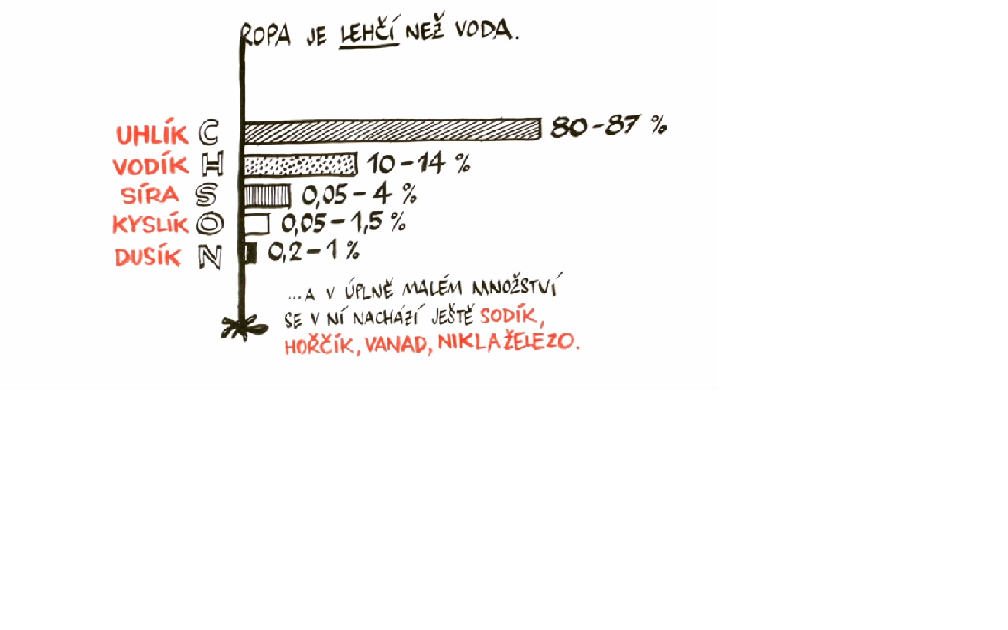 ROPA JE LEHČÍ NEŽ VODA.
UHLÍK C 80-87 %
VODÍK H 10-14 %
SÍRA S 0,05-4 %
KYSLÍK O 0,05-1,5 %
DUSÍK N 0,2-1 %
...A V ÚPLNĚ MALÉM MNOŽSTVÍ
SE V NÍ NACHÁZÍ JEŠTĚ SODÍK,
HOŘČÍK, VANAD, NIKL A ŽELEZO.